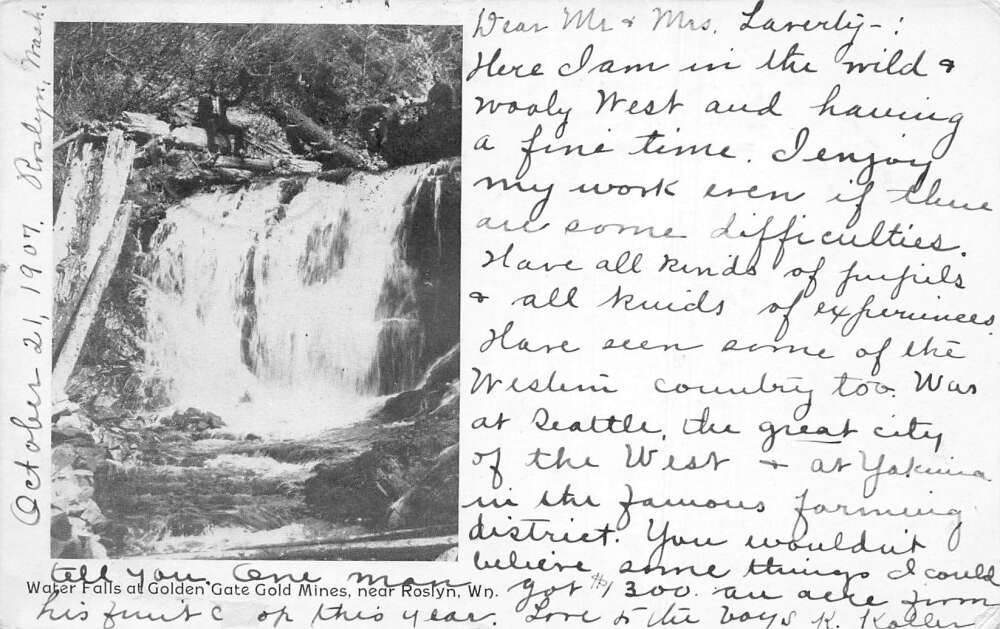 October 21, 1907. Roslyn, Wash.
Dear Mr & Mrs. Laverty-:
Here I am in the wild &
wooly West and having
a fine time. I enjoy
my work even if there
are some difficulties.
Have all kinds of pupils
& all kinds of experiences.
Have seen some of the
Western country too. Was
at Seattle, the great city
of the West & at Yakima
in the famous farming
district. You wouldn't
believe some things I could
tell you. One man got $1300. an acre from
Water Falls at Golden Gate Gold Mines, near Roslyn, Wn.
his fruit crop this year. Love to the boys K. Koller